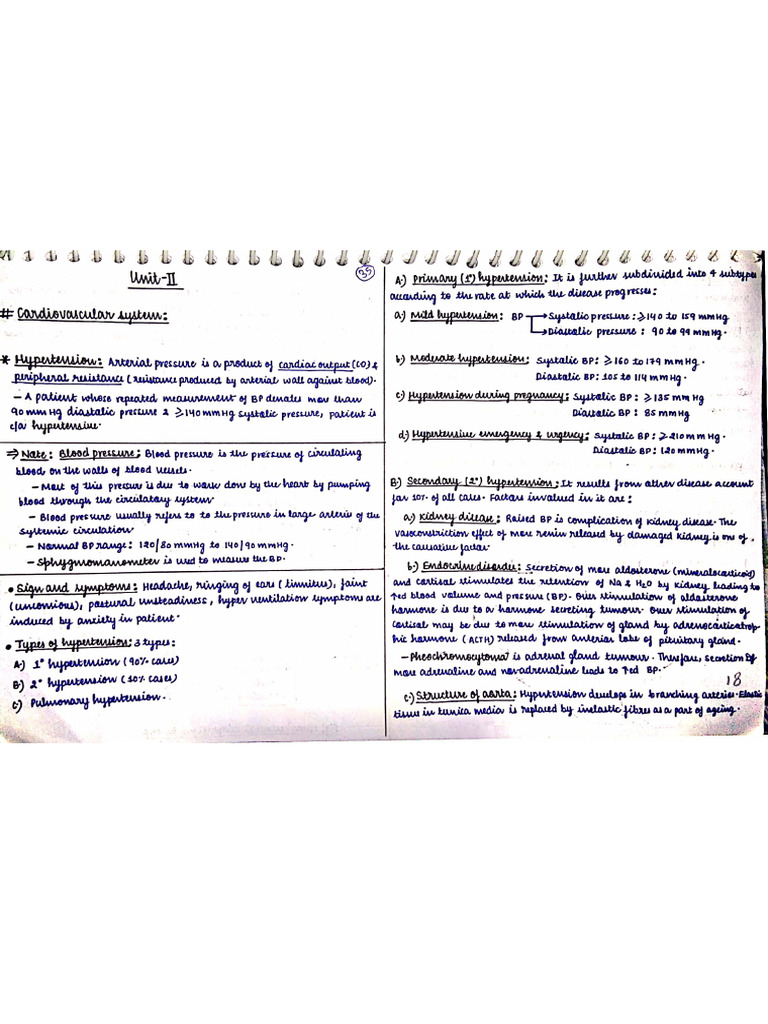 Unit-II
35
# Cardiovascular system:
* Hypertension: Arterial pressure is a product of cardiac output (CO) &
peripheral resistance (resistance produced by arterial wall against blood).
– A patient whose repeated measurement of BP denotes more than
90 mm Hg diastolic pressure & ≥ 140 mmHg systolic pressure, patient is
c/a hypertensive.
⇒ Note: Blood pressure: Blood pressure is the pressure of circulating
blood on the walls of blood vessels.
– Most of this pressure is due to work done by the heart by pumping
blood through the circulatory system
– Blood pressure usually refers to to the pressure in large arteries of the
systemic circulation
– Normal BP range: 120/80 mmHg to 140/90 mmHg.
– Sphygmomanometer is used to measure the BP.
• Sign and symptoms: Headache, ringing of ears (tinnitus), faint
(unconsious), postural unsteadiness, hyper ventilation symptoms are
induced by anxiety in patient.
• Types of hypertension: 3 types:
A) 1° hypertension (90% cases)
B) 2° hypertension (10% cases)
C) Pulmonary hypertension.
A) Primary (1°) hypertension: It is further subdivided into 4 subtypes
according to the rate at which the disease progresses:
a) Mild hypertension: BP → Systolic pressure: ≥ 140 to 159 mmHg
→ Diastolic pressure: 90 to 99 mmHg.
b) Moderate hypertension: Systolic BP: ≥ 160 to 179 mmHg.
Diastolic BP: 105 to 114 mmHg.
c) Hypertension during pregnancy: Systolic BP: ≥ 135 mmHg
Diastolic BP: 85 mmHg
d) Hypertensive emergency & urgency: Systolic BP: ≥ 210 mmHg
Diastolic BP: 120 mmHg.
B) Secondary (2°) hypertension: It results from other disease account
for 10% of all cases. Factors involved in it are:
a) Kidney disease: Raised BP is complication of kidney disease. The
vasoconstriction effect of more renin released by damaged kidney is one of
the causative factor.
b) Endocrine disorder: Secretion of more aldosterone (mineralocorticoid)
and cortisol stimulates the retention of Na & H2O by kidney leading to
↑ed blood volume and pressure (BP). Over stimulation of aldosterone
hormone is due to a hormone secreting tumour. Over stimulation of
cortisol may be due to more stimulation of gland by adrenocorticotrop-
hic hormone (ACTH) released from anterior lobe of pituitary gland.
– Pheochromocytoma is adrenal gland tumour. Therefore, secretion of
more adrenaline and noradrenaline leads to ↑ed BP.
18
c) Structure of aorta: Hypertension develops in branching arteries. Elastic
tissue in tunica media is replaced by inelastic fibres as a part of ageing.